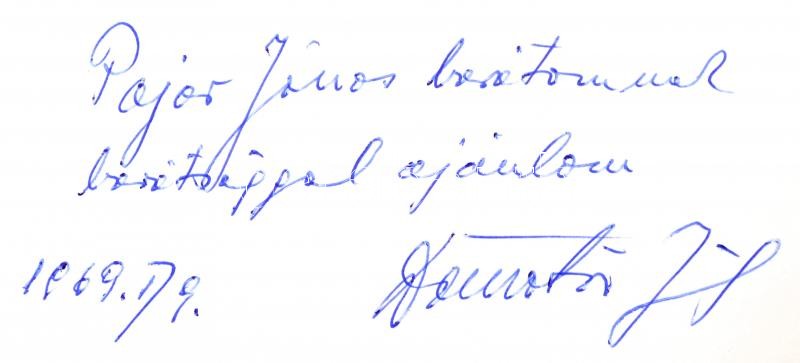 Pajor János barátomnak
barátsággal ajánlom
1969. IV 9.
Dömötör J